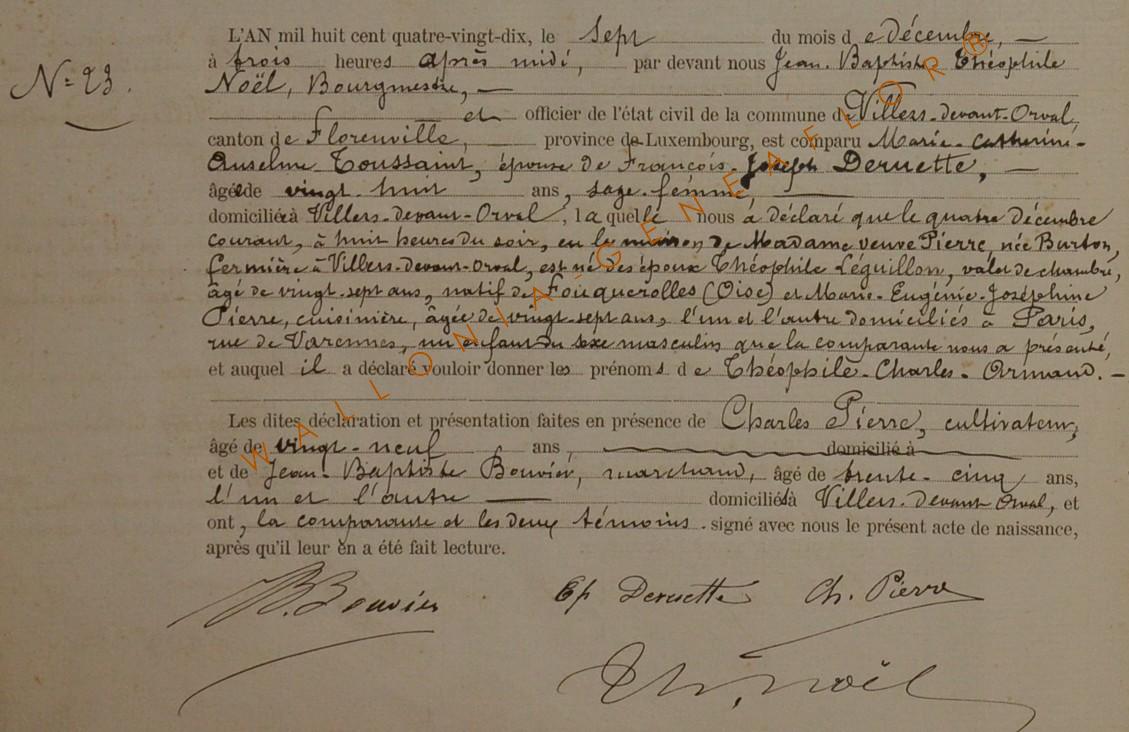 L'AN mil huit cent quatre-vingt-dix, le Sept du mois d e décembre, —
à trois heures après midi, par devant nous Jean-Baptiste Théophile
N= 23.
Noël, Bourgmestre, —
et officier de l'état civil de la commune de Villers-devant-Orval,
canton de Florenville, province de Luxembourg, est comparu Marie-Catherine-
Anselme Toussaint, épouse de François-Joseph Deruette, —
âgée de vingt-huit ans, sage-femme
domiciliée à Villers-devant-Orval, laquelle nous a déclaré que le quatre décembre
courant, à huit heures du soir, en la maison de Madame veuve Pierre, née Burton,
fermière à Villers-devant-Orval, est né des époux Théophile Léguillon, valet de chambre,
âgé de vingt-sept ans, natif de Fouquerolles (Oise) et Marie-Eugénie-Joséphine
Pierre, cuisinière, âgée de vingt-sept ans, l'un et l'autre domiciliés à Paris,
rue de Varennes, un enfant du sexe masculin que la comparante nous a présenté,
et auquel il a déclaré vouloir donner les prénoms de Théophile-Charles-Armand. —
Les dites déclaration et présentation faites en présence de Charles Pierre, cultivateur,
âgé de vingt-neuf ans, domicilié à
et de Jean-Baptiste Bouvier, marchand, âgé de trente-cinq ans,
l'un et l'autre — domiciliés à Villers-devant-Orval, et
ont, la comparante et les deux témoins signé avec nous le présent acte de naissance,
après qu'il leur en a été fait lecture.
B. Bouvier Ep Deruette Ch. Pierre
Th. Noël
WALLONIA-GENEAFLOR®